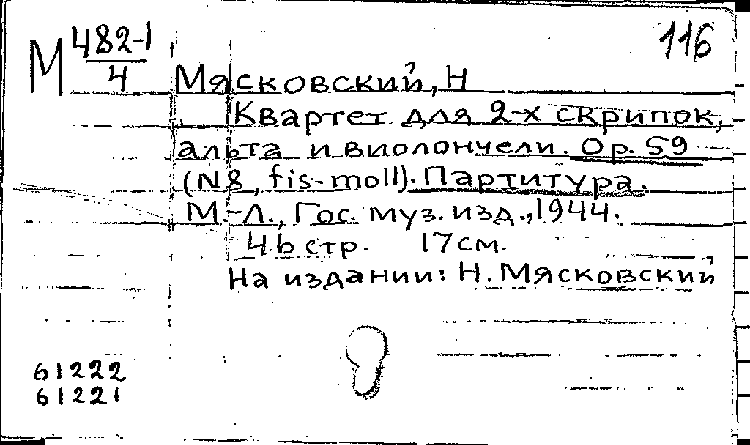 116
М 482-1
4
Мясковский, Н
Квартет для 2-х скрипок,
альта и виолончели. Ор. 59
(N8, fis-moll). Партитура.
М.-Л., Гос. муз. изд., 1944.
46 стр. 17см.
На издании: Н. Мясковский
61222
61221